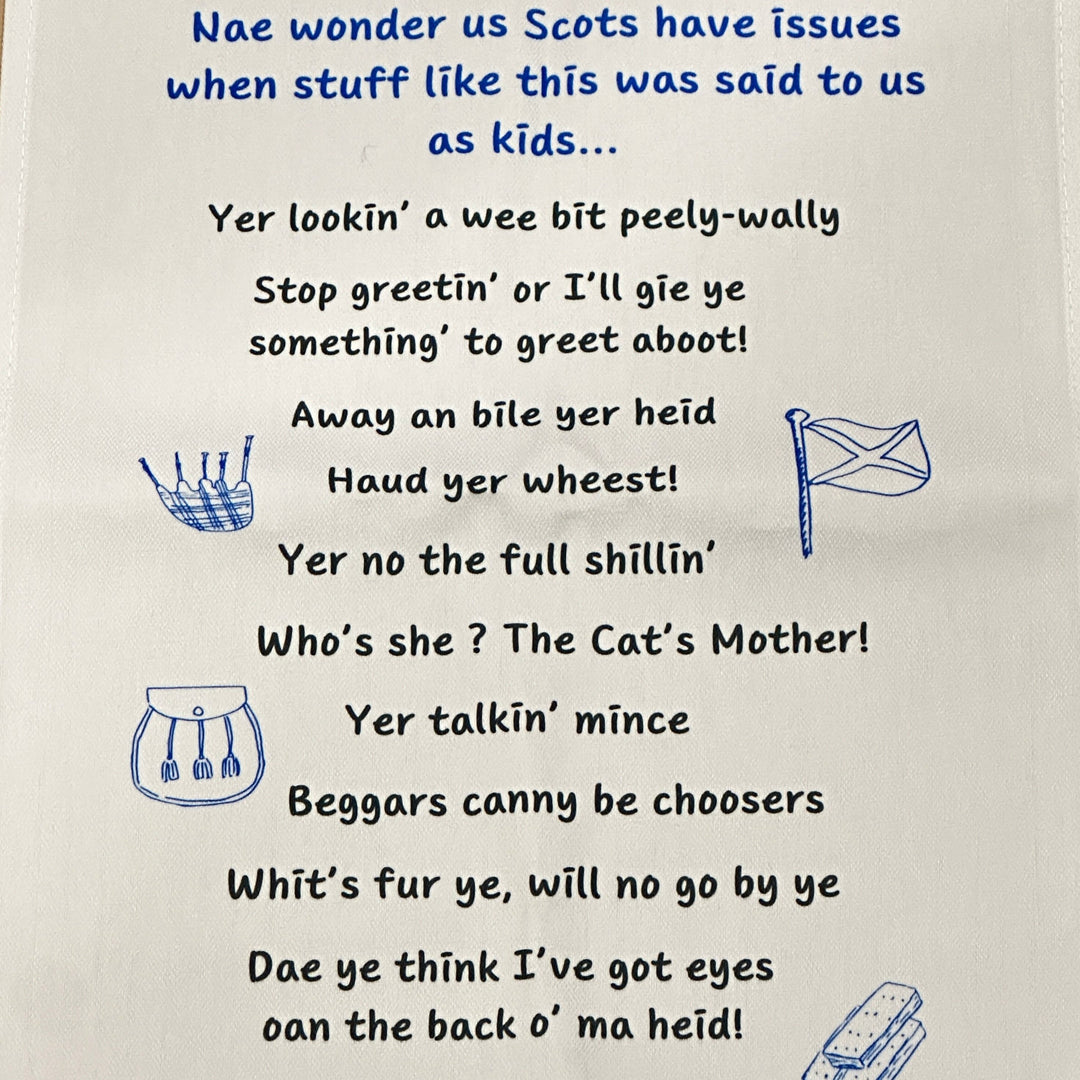 Nae wonder us Scots have issues
when stuff like this was said to us
as kids...
Yer lookin' a wee bit peely-wally
Stop greetin' or I'll gie ye
something' to greet aboot!
Away an bile yer heid
Haud yer wheest!
Yer no the full shillin'
Who's she ? The Cat's Mother!
Yer talkin' mince
Beggars canny be choosers
Whit's fur ye, will no go by ye
Dae ye think I've got eyes
oan the back o' ma heid!